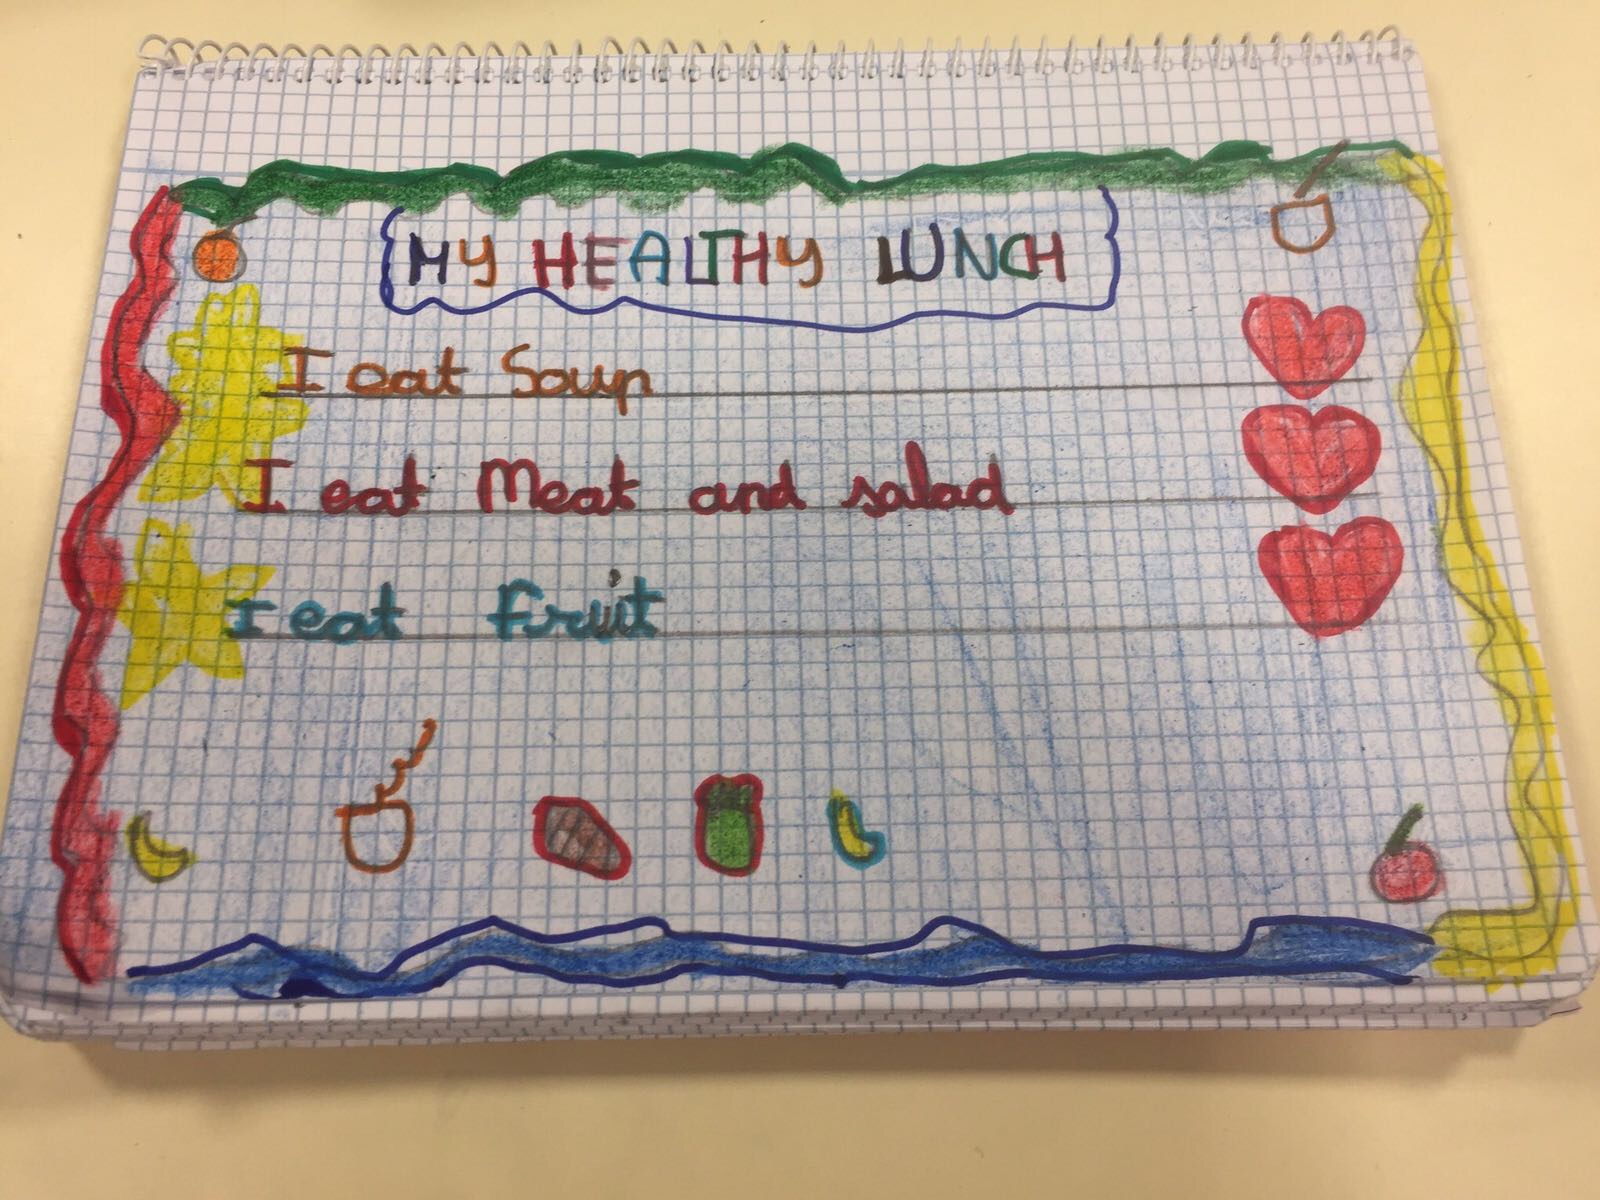 MY HEALTHY LUNCH
I eat Soup
I eat Meat and salad
I eat Fruit